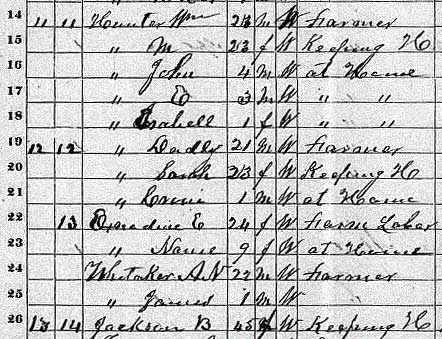 14 11 11 Hunter Wm 23 m W Farmer
15 " M 23 f W Keeping H
16 " John 4 m W at Home
17 " E 3 m W " "
18 " Isabell 1 f W " "
19 12 12 " Dudly 21 m W Farmer
20 " Sarah 23 f W Keeping H
21 " 1 m W at Home
22 13 E 24 f W Farm Labor
23 " Name 9 f W at Home
24 Whitaker A N 22 m W Farmer
25 " James 1 m W
26 13 14 Jackson B 45 f W Keeping H